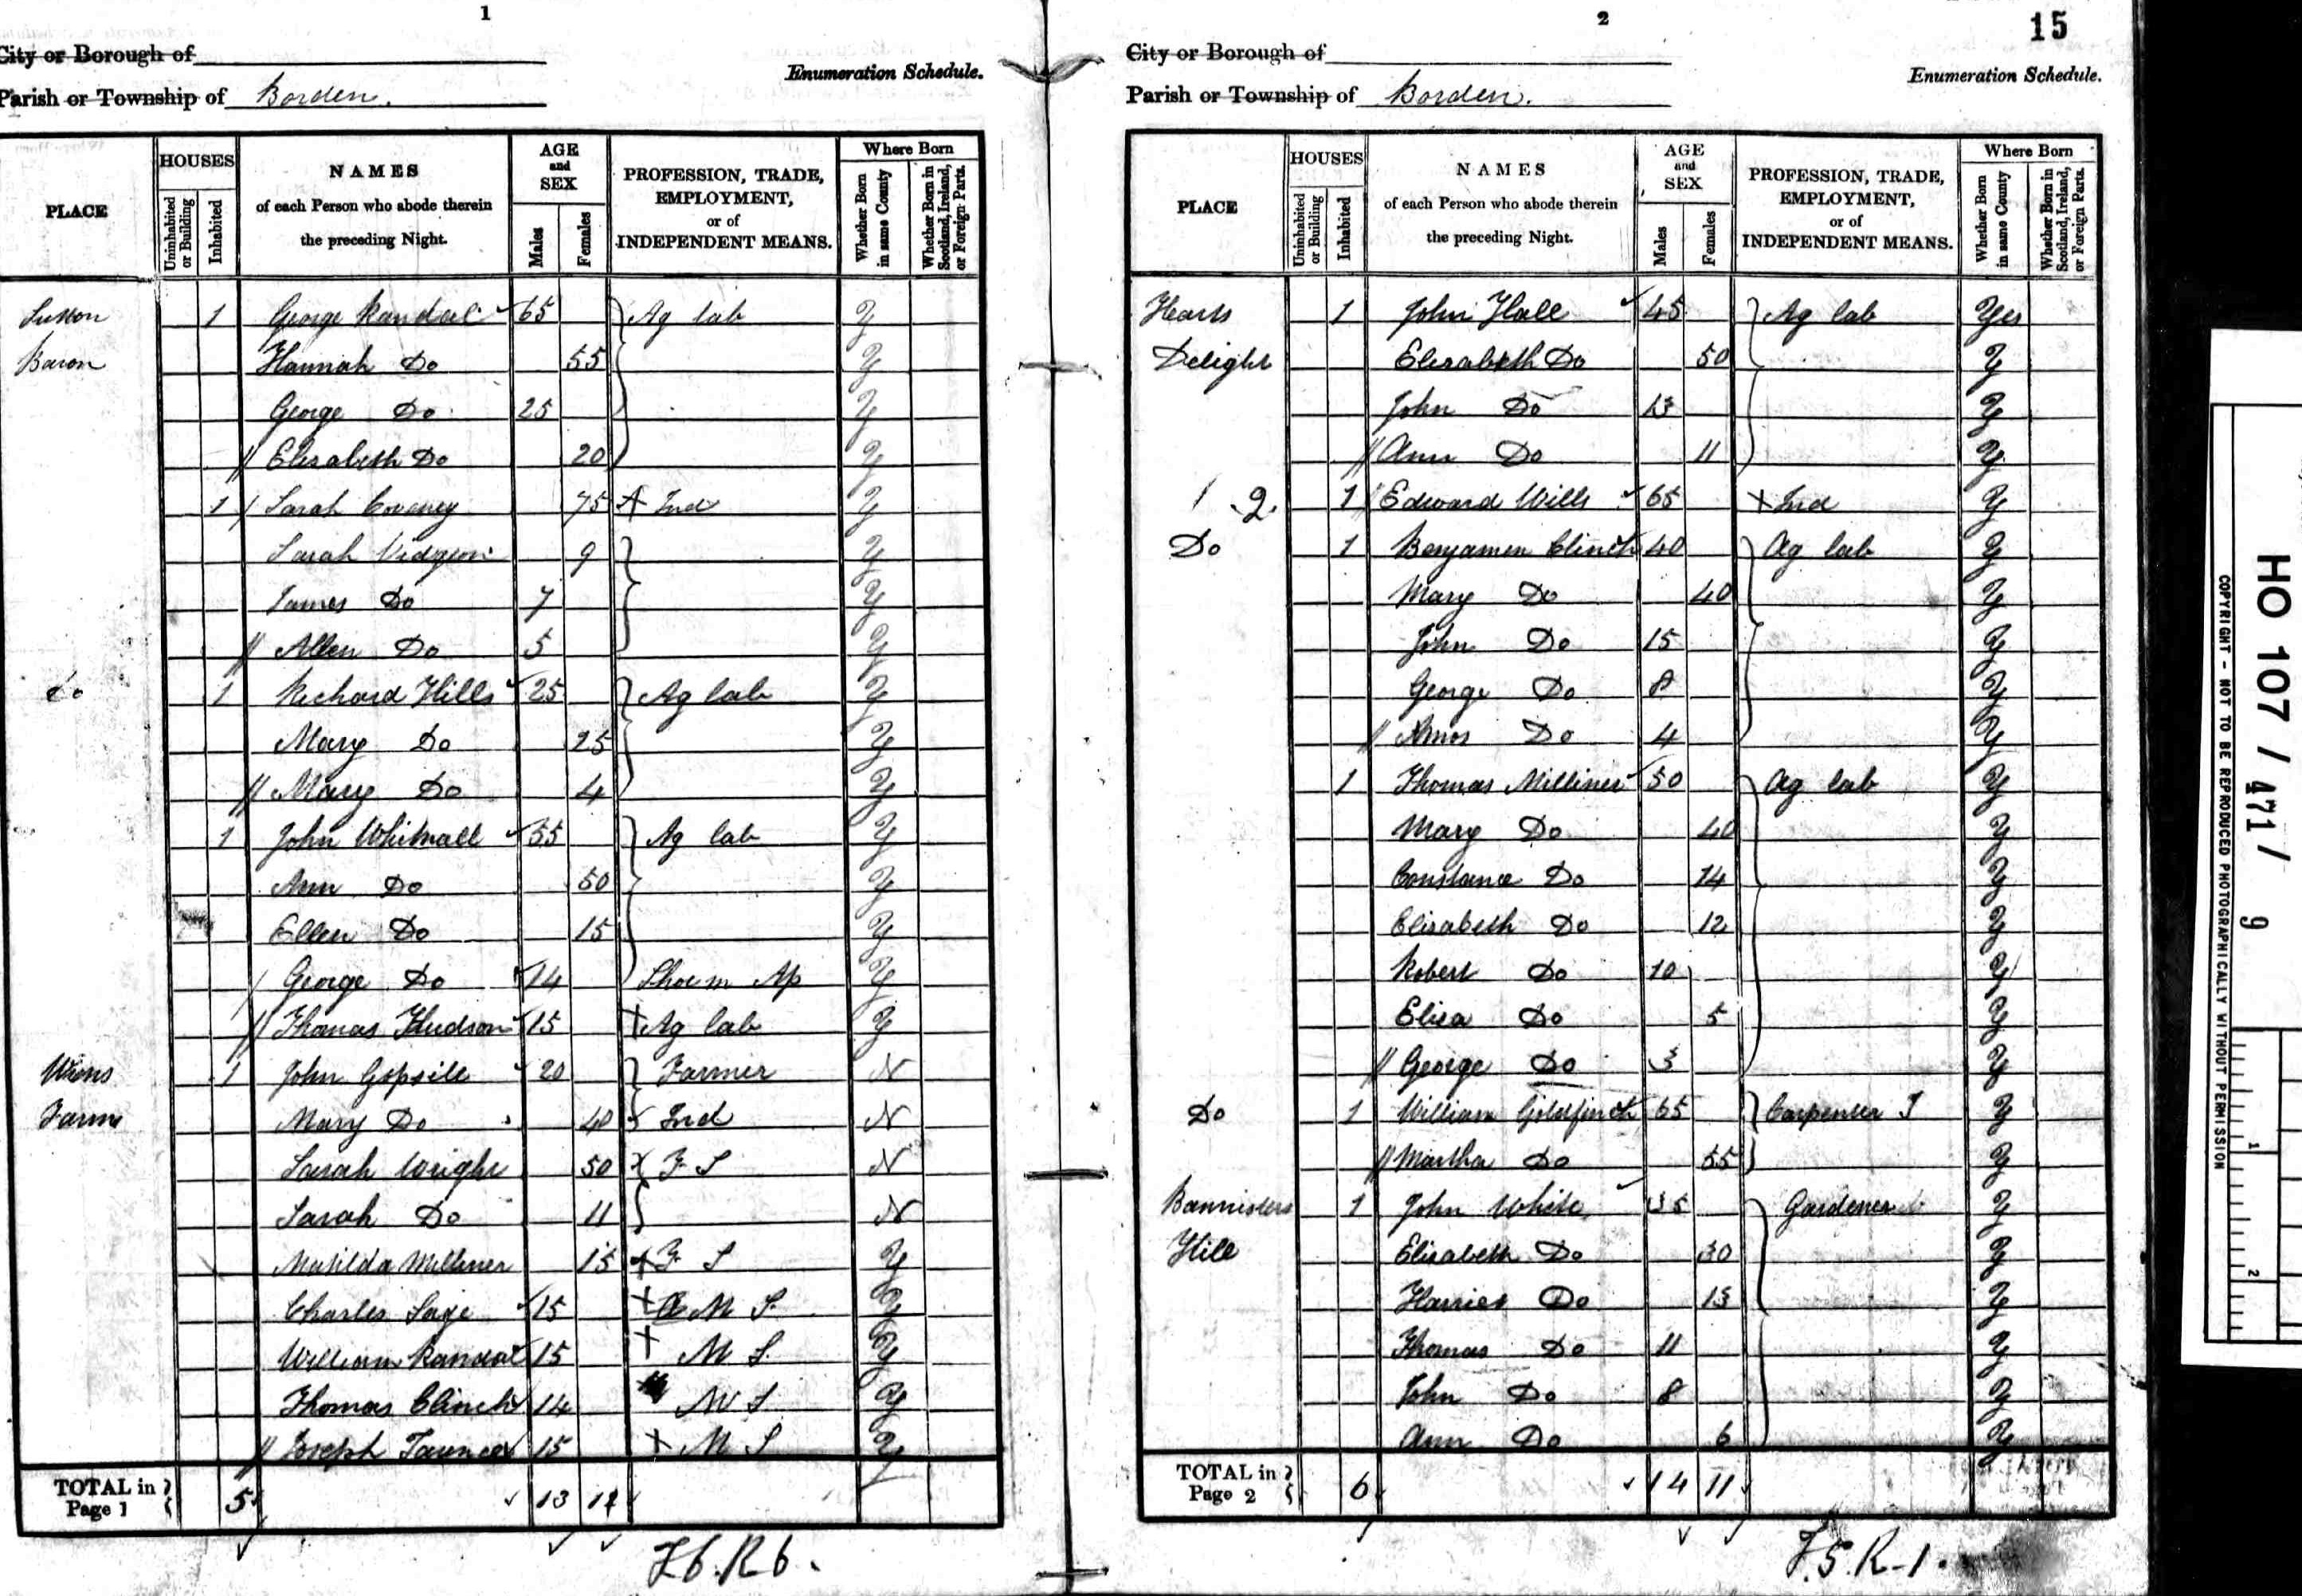 1
City or Borough of
Enumeration Schedule.
Parish or Township of Borden.
PLACE
HOUSES
Uninhabited or Building
Inhabited
NAMES of each Person who abode therein the preceding Night.
AGE and SEX
Males
Females
PROFESSION, TRADE, EMPLOYMENT, or of INDEPENDENT MEANS.
Where Born
Whether Born in same County
Whether Born in Scotland, Ireland, or Foreign Parts.
Sutton 1 George Randal 65 Ag lab Y
Baron Hannah Do 55 Y
George Do 25 Y
// Elisabeth Do 20 Y
1 / Sarah Coveney 75 + Ind Y
Sarah Vidgeon 9 Y
James Do 7 Y
// Allen Do 5 Y
do 1 Richard Hills 25 Ag lab Y
Mary Do 25 Y
// Mary Do 4 Y
1 John Whitnall 55 Ag lab Y
Ann Do 50 Y
Ellen Do 15 Y
/ George Do 14 Shoe m Ap Y
// Thomas Hudson 15 + Ag lab Y
Wrens 1 John Gopsill 20 Farmer N
Farm Mary Do 40 Ind N
Sarah Wright 50 F S N
Sarah Do 11 N
Matilda Milliner 15 + F S Y
Charles Sage 15 + M S. Y
William Randal 15 + M S. Y
Thomas Clinch 14 M S Y
// Joseph 15 + M S Y
TOTAL in Page 1 5 13 12
F6.R6.
2
15
City or Borough of
Enumeration Schedule.
Parish or Township of Borden.
PLACE
HOUSES
Uninhabited or Building
Inhabited
NAMES of each Person who abode therein the preceding Night.
AGE and SEX
Males
Females
PROFESSION, TRADE, EMPLOYMENT, or of INDEPENDENT MEANS.
Where Born
Whether Born in same County
Whether Born in Scotland, Ireland, or Foreign Parts.
Hearts 1 John Hall 45 Ag lab Yes
Delight Elisabeth Do 50 Y
John Do 13 Y
// Ann Do 11 Y
2 1 Edward Wills 65 + Ind Y
Do 1 Benjamin Clinch 40 Ag lab Y
Mary Do 40 Y
John Do 15 Y
George Do 8 Y
// Amos Do 4 Y
1 Thomas Milliner 50 Ag lab Y
Mary Do 40 Y
Constance Do 14 Y
Elisabeth Do 12 Y
Robert Do 10 Y
Elisa Do 5 Y
// George Do 3 Y
Do 1 William Goldfinch 65 Carpenter J Y
// Martha Do 55 Y
Bannisters 1 John White 35 Gardener Y
Hill Elisabeth Do 30 Y
Harriet Do 13 Y
Thomas Do 11 Y
John Do 8 Y
Ann Do 6 Y
TOTAL in Page 2 6 14 11
F.5.R-1.
HO 107 / 471 / 9
COPYRIGHT - NOT TO BE REPRODUCED PHOTOGRAPHICALLY WITHOUT PERMISSION
1
2